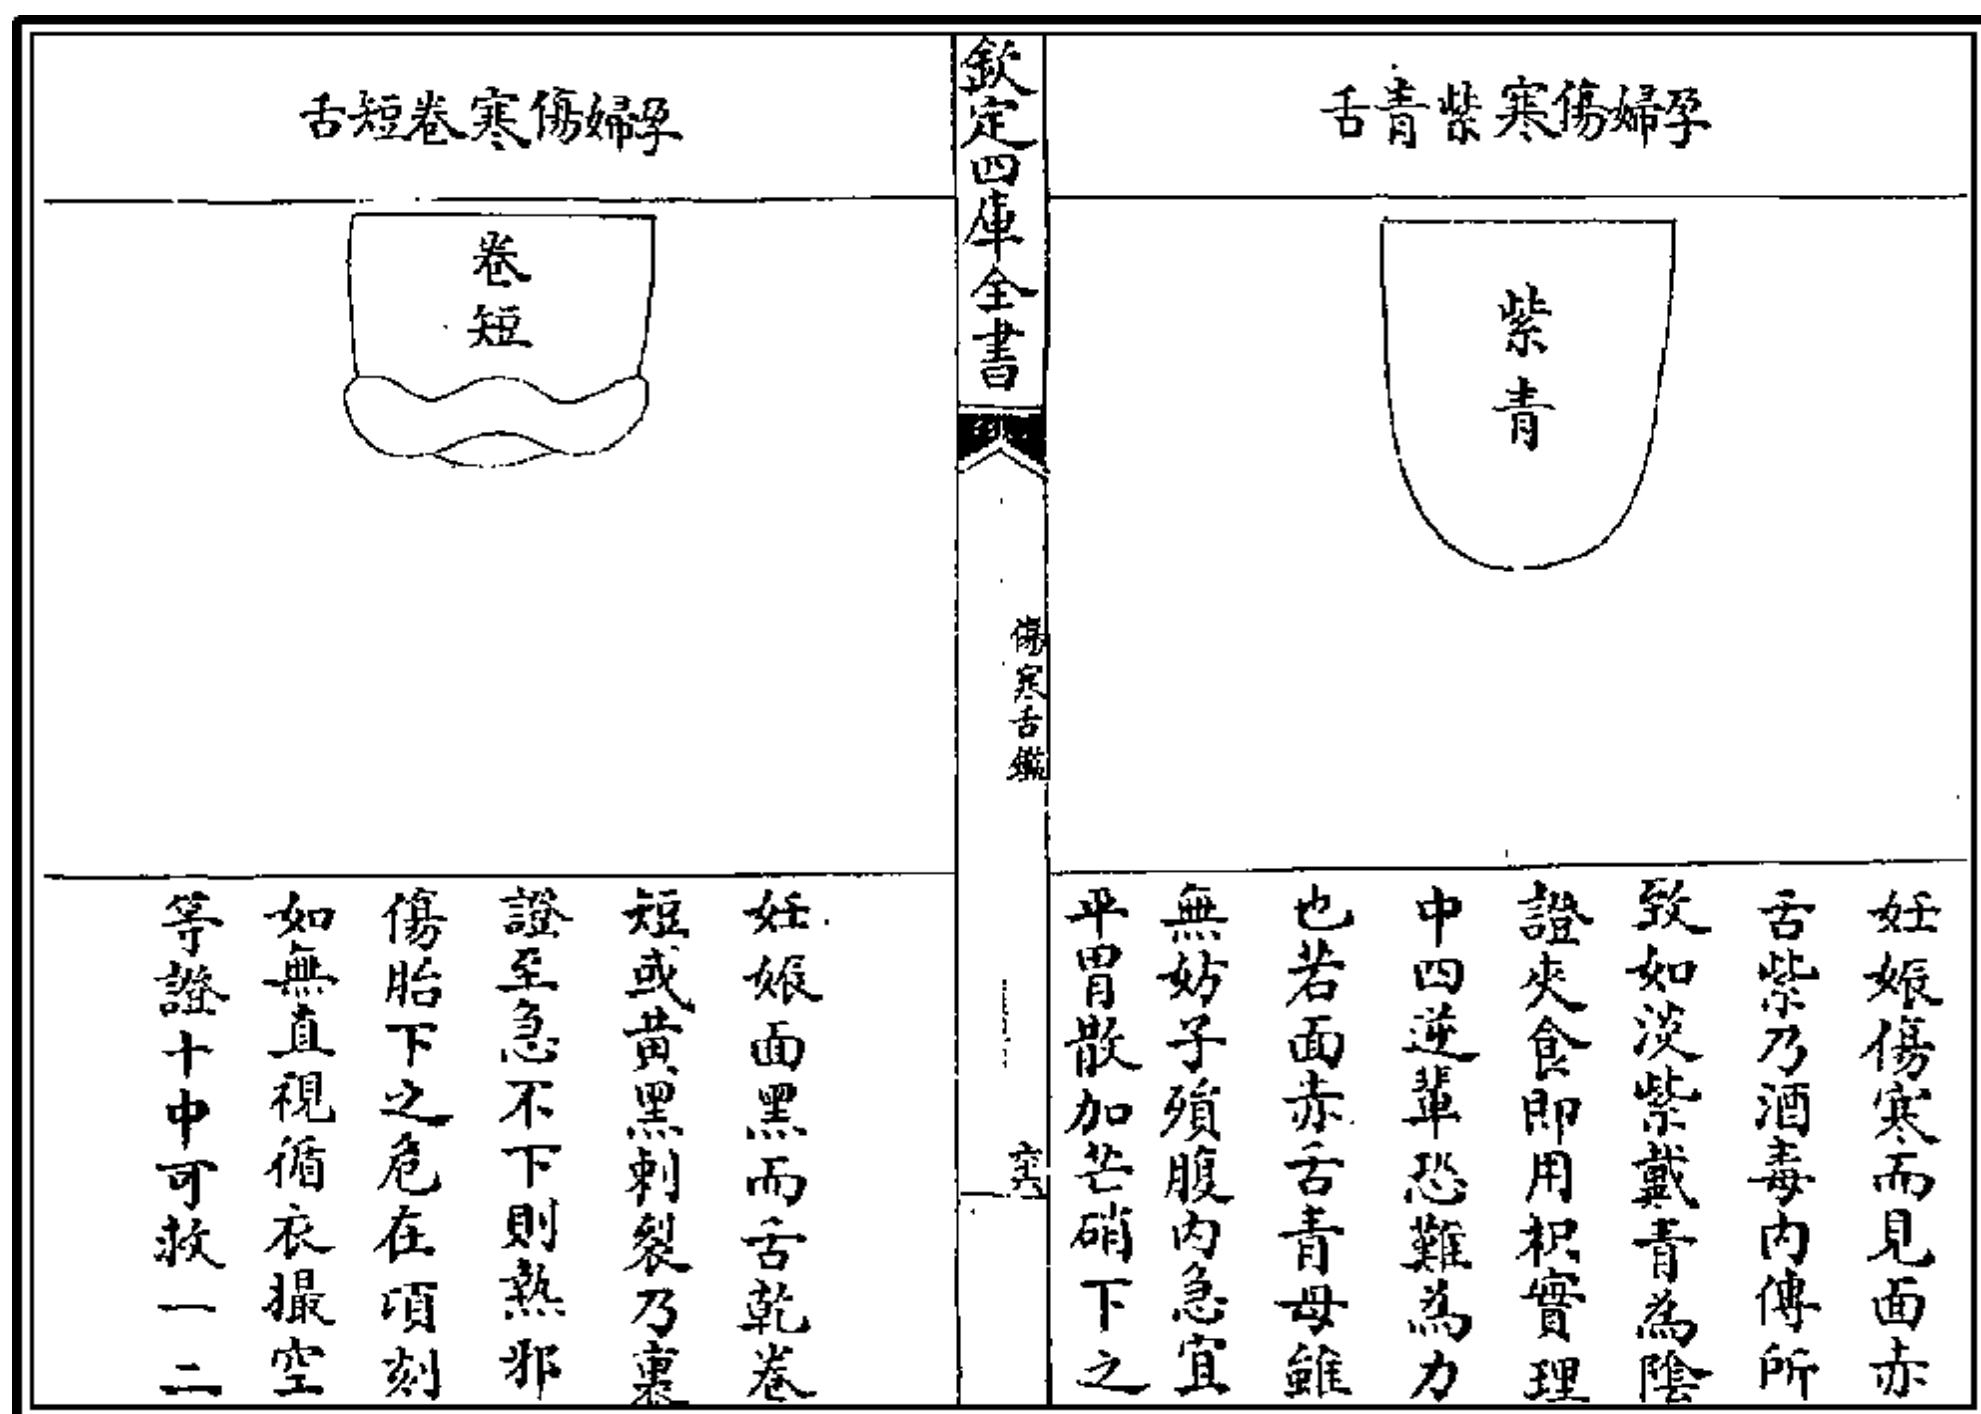 孕婦傷寒紫青舌
紫青
妊娠傷寒而見面赤
舌紫乃酒毒内傳所
致如淡紫戴青為陰
證夾食即用枳實理
中四逆輩恐難為力
也若面赤舌青母雖
無妨子殞腹内急宜
平胃散加芒硝下之
欽定四庫全書
傷寒舌鑑
孕婦傷寒卷短舌
卷短
妊娠面黑而舌乾卷
短或黃黑刺裂乃裏
證至急不下則熱邪
傷胎下之危在頃刻
如無直視循衣撮空
等證十中可救一二